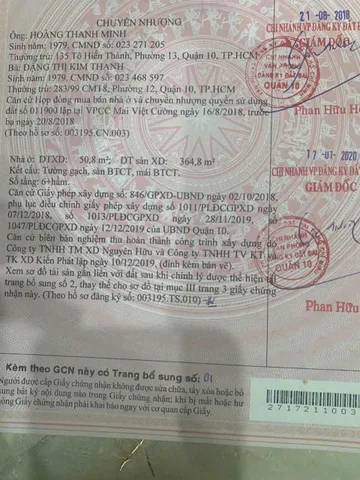 CHUYỂN NHƯỢNG
Ông: HOÀNG THANH MINH
Sinh năm: 1979, CMND số: 023 271 205
Thường trú: 135 Tô Hiến Thành, Phường 13, Quận 10, TP.HCM
Bà: ĐẶNG THỊ KIM THANH
Sinh năm: 1979, CMND số: 023 468 597
Thường trú: 283/99 CMT8, Phường 12, Quận 10, TP.HCM
Căn cứ Hợp đồng mua bán nhà ở và chuyển nhượng quyền sử dụng
đất số 011900 lập tại VPCC Mai Việt Cường ngày 16/8/2018, trước
bạ ngày 20/8/2018
(Theo hồ sơ số: 003195.CN.003)
21 -08- 2018
CHI NHÁNH VP ĐĂNG KÝ ĐẤT
GIÁM ĐỐC
CHI NHÁNH
VĂN PHÒNG
ĐĂNG KÝ ĐẤT ĐAI
QUẬN 10
Phan Hữu
Nhà ở: DTXD: 50,8 m²; DT sàn XD: 364,8 m²
Kết cấu: Tường gạch, sàn BTCT, mái BTCT.
Số tầng: 6+hầm.
Căn cứ Giấy phép xây dựng số: 846/GPXD-UBND ngày 02/10/2018,
phụ lục điều chỉnh giấy phép xây dựng số 1011/PLĐCGPXD ngày
07/12/2018, số 1013/PLĐCGPXD ngày 28/11/2019, số
1047/PLĐCGPXD ngày 12/12/2019 của UBND Quận 10.
Căn cứ biên bản nghiệm thu hoàn thành công trình xây dựng do
Công ty TNHH TM XD Nguyên Hữu và Công ty TNHH TV KT
TK XD Kiến Phát lập ngày 10/12/2019, (đính kèm bản vẽ).
Xem sơ đồ tài sản gắn liền với đất sau khi chỉnh lý được thể hiện tại
trang bổ sung số 2, thay thế cho sơ đồ tại mục III trang 3 giấy chứng
nhận này. (Theo hồ sơ đăng ký số: 003195.TS.010)
17 -07- 2020
CHI NHÁNH VP ĐĂNG KÝ ĐẤT
GIÁM ĐỐC
ĐĂNG KÝ ĐẤT ĐAI
QUẬN 10
Phan Hữu
Kèm theo GCN này có Trang bổ sung số: 01
Người được cấp Giấy chứng nhận không được sửa chữa, tẩy xóa hoặc bổ
sung bất kỳ nội dung nào trong Giấy chứng nhận; khi bị mất hoặc hư
hỏng Giấy chứng nhận phải khai báo ngay với cơ quan cấp Giấy.
2717211003